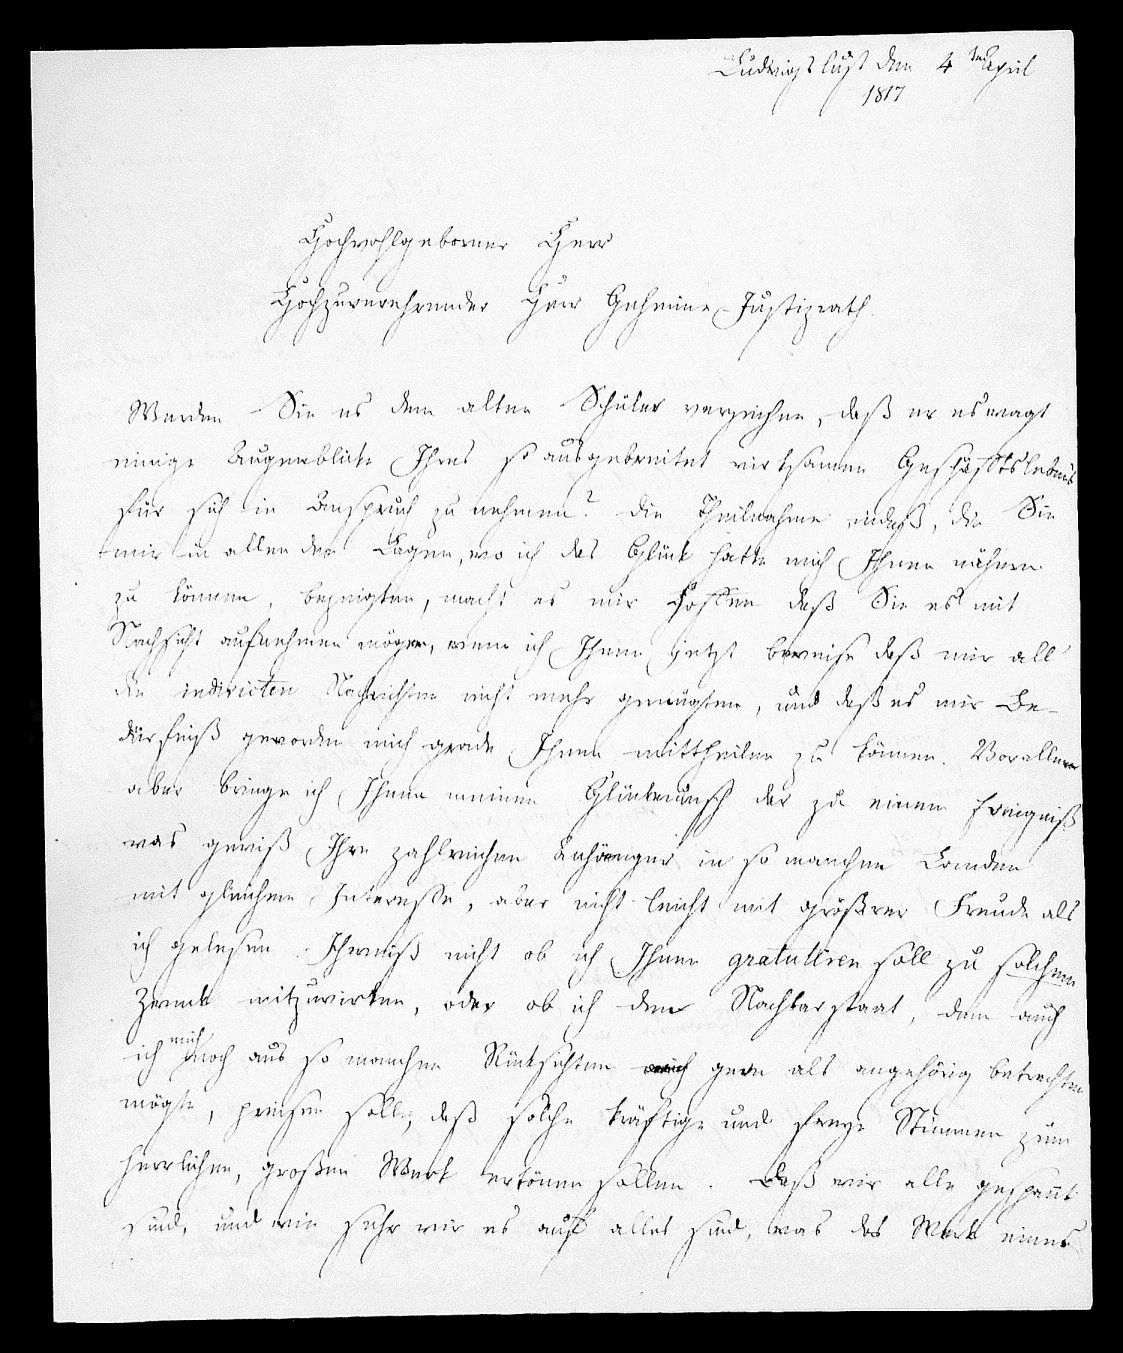 Ludwigslust den 4ten April
1817
Hochwohlgeborner Herr
Hochzuverehrender Herr Geheime Justizrath.
Werden Sie es dem alten Schüler verzeihen, daß er es wagt
einige Augenblicke Ihres so ausgebreitet wirksamen Geschäftslebens
für sich in Anspruch zu nehmen? Die Theilnahme indeß, die Sie
mir in allen den Lagen, wo ich das Glück hatte mich Ihnen nähern
zu können, bezeigten, macht es mir hoffen daß Sie es mit
Nachsicht aufnehmen mögen, wenn ich Ihnen jetzt beweise daß mir all
die indirecten Nachrichten nicht mehr genügten, und daß es mir Be-
dürfniß geworden mich grade Ihnen mittheilen zu können. Vor allem
aber bringe ich Ihnen meinen Glückwunsch dar zu einem Ereigniß
was gewiß Ihre zahlreichen Anhänger in so manchen Landen
mit gleichem Interesse, aber nicht leicht mit größrer Freude als
ich gelesen. Ich weiß nicht ob ich Ihnen gratuliren soll zu solchem
Zweck mitzuwirken, oder ob ich den Nachbarstaat, dem auch
ich mich noch aus so manchen Rücksichten gern als angehörig betrachten
mögte, preisen soll, daß solche kräftige und freye Stimmen zum
herrlichen, großen Werk ertönen sollen. Daß wir alle gespannt
sind, und wie sehr wir es auf alles sind, was das Werk eines